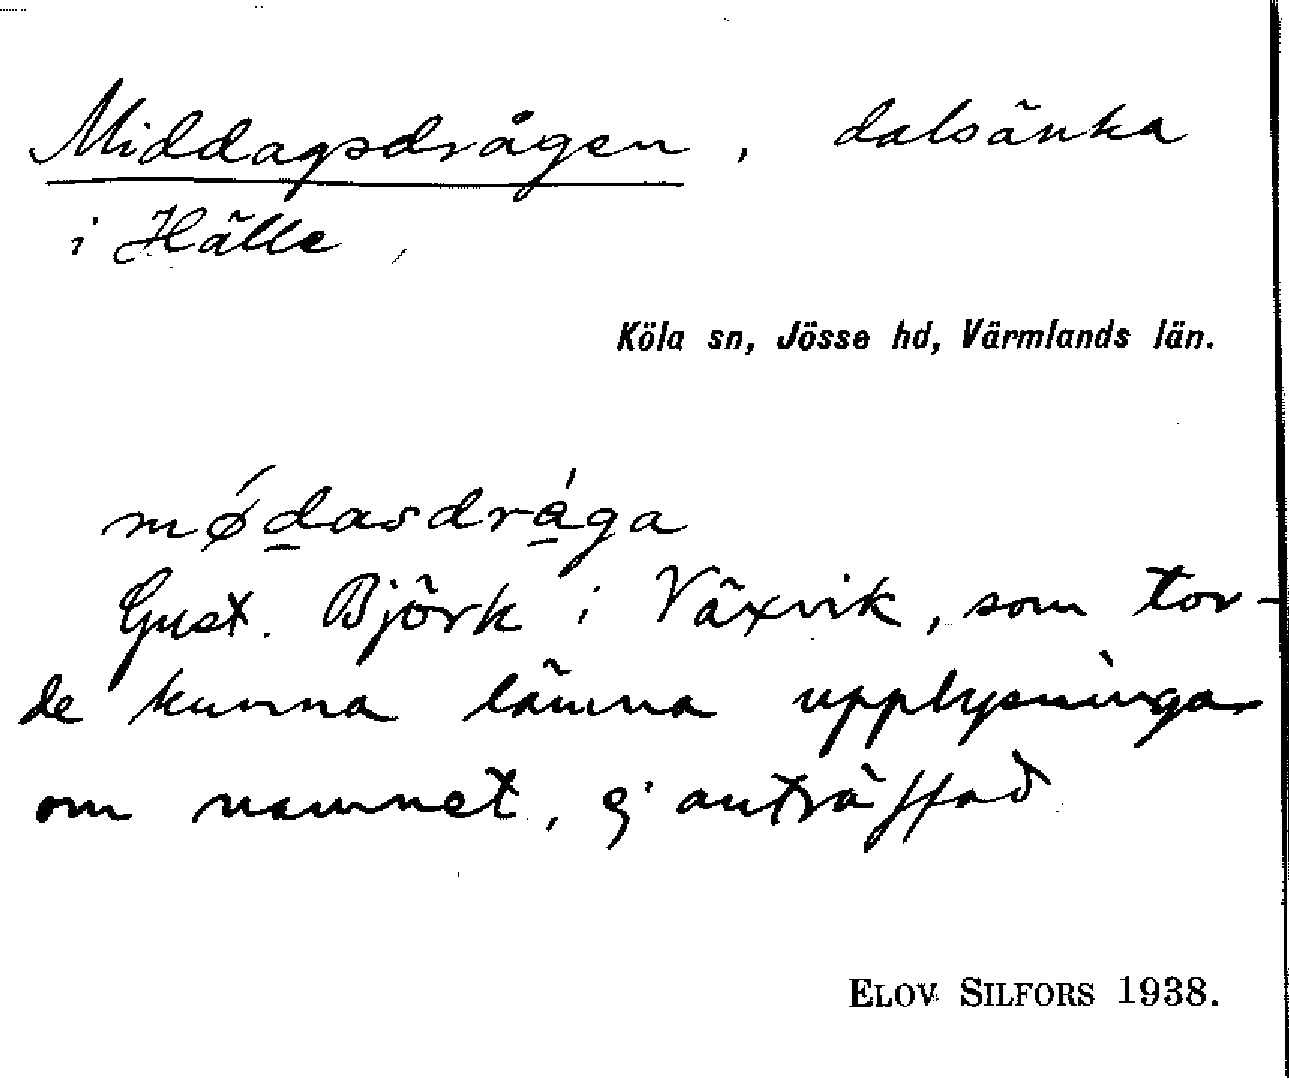 Middagsdrågen, dalsänka
i Hälle,
Köla sn, Jösse hd, Värmlands län.
mǿd̲asdrá̲ga
Gust. Björk i Växvik, som tor-
de kunna lämna upplysningar
om namnet, ej anträffad
ELOV SILFORS 1938.